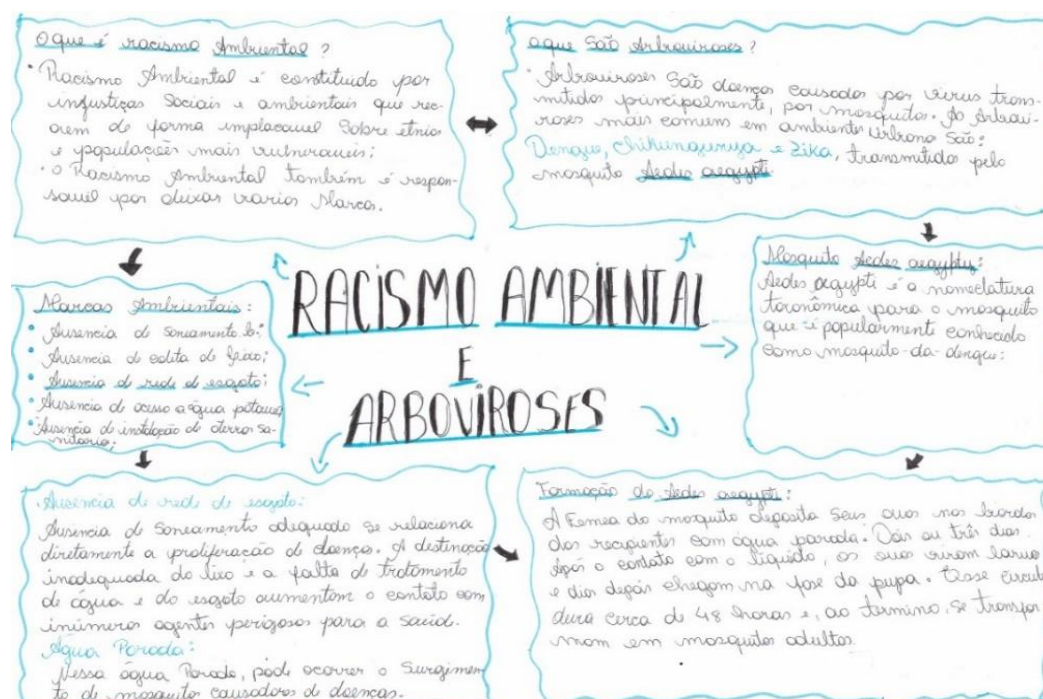 O que é racismo Ambiental ?
• Racismo Ambiental é constituido por
injustiças Sociais e ambientais que rec-
aem de forma implacavel Sobre etnias
e populações mais vulneraveis;
• O Racismo Ambiental também é respon-
savel por deixar varias Marcas.
o que São Arbroviroses ?
• Arbroviroses São doenças causadas por virus trans-
mitidos principalmente, por mosquitos. As Arbrovi-
roses mais comum em ambiente Urbano São:
Dengue, chikungunya e Zika, transmitido pelo
mosquito Aedes aegypti.
RACISMO AMBIENTAL
E
ARBOVIROSES
Marcas Ambientais:
• Ausencia de Saneamento
• Ausencia de colita de lixo;
• Ausencia de rede de esgoto;
• Ausencia de acesso a água potavel
• Ausencia de instalação de aterros sa-
nitario;
Mosquito Aedes aegypty:
Aedes aegypti é a nomeclatura
taxonômica para o mosquito
que é popularmente conhecido
como mosquito-da-dengue:
Ausencia de rede de esgoto:
Ausencia de Saneamento adequado se relaciona
diretamente a proliferação de doenças. A destinação
inadequada do lixo e a falta de tratamento
de água e do esgoto aumentam o contato com
inúmeros agentes perigosos para a saúd.
Água Parada:
Nessa água Parada, pode ocorrer o Surgimen-
to de mosquitos causadores de doenças.
Formação do Aedes aegypti:
A Femea do mosquito deposita Seus ovos nas bordas
dos recipientes com água parada. Dois ou três dias
Após o contato com o líquido, os ovos viram larva
e dias depois chegam na fase da pupa. Esse
dura cerca de 48 horas e, ao termino, se transfor
mam em mosquitos adultos.